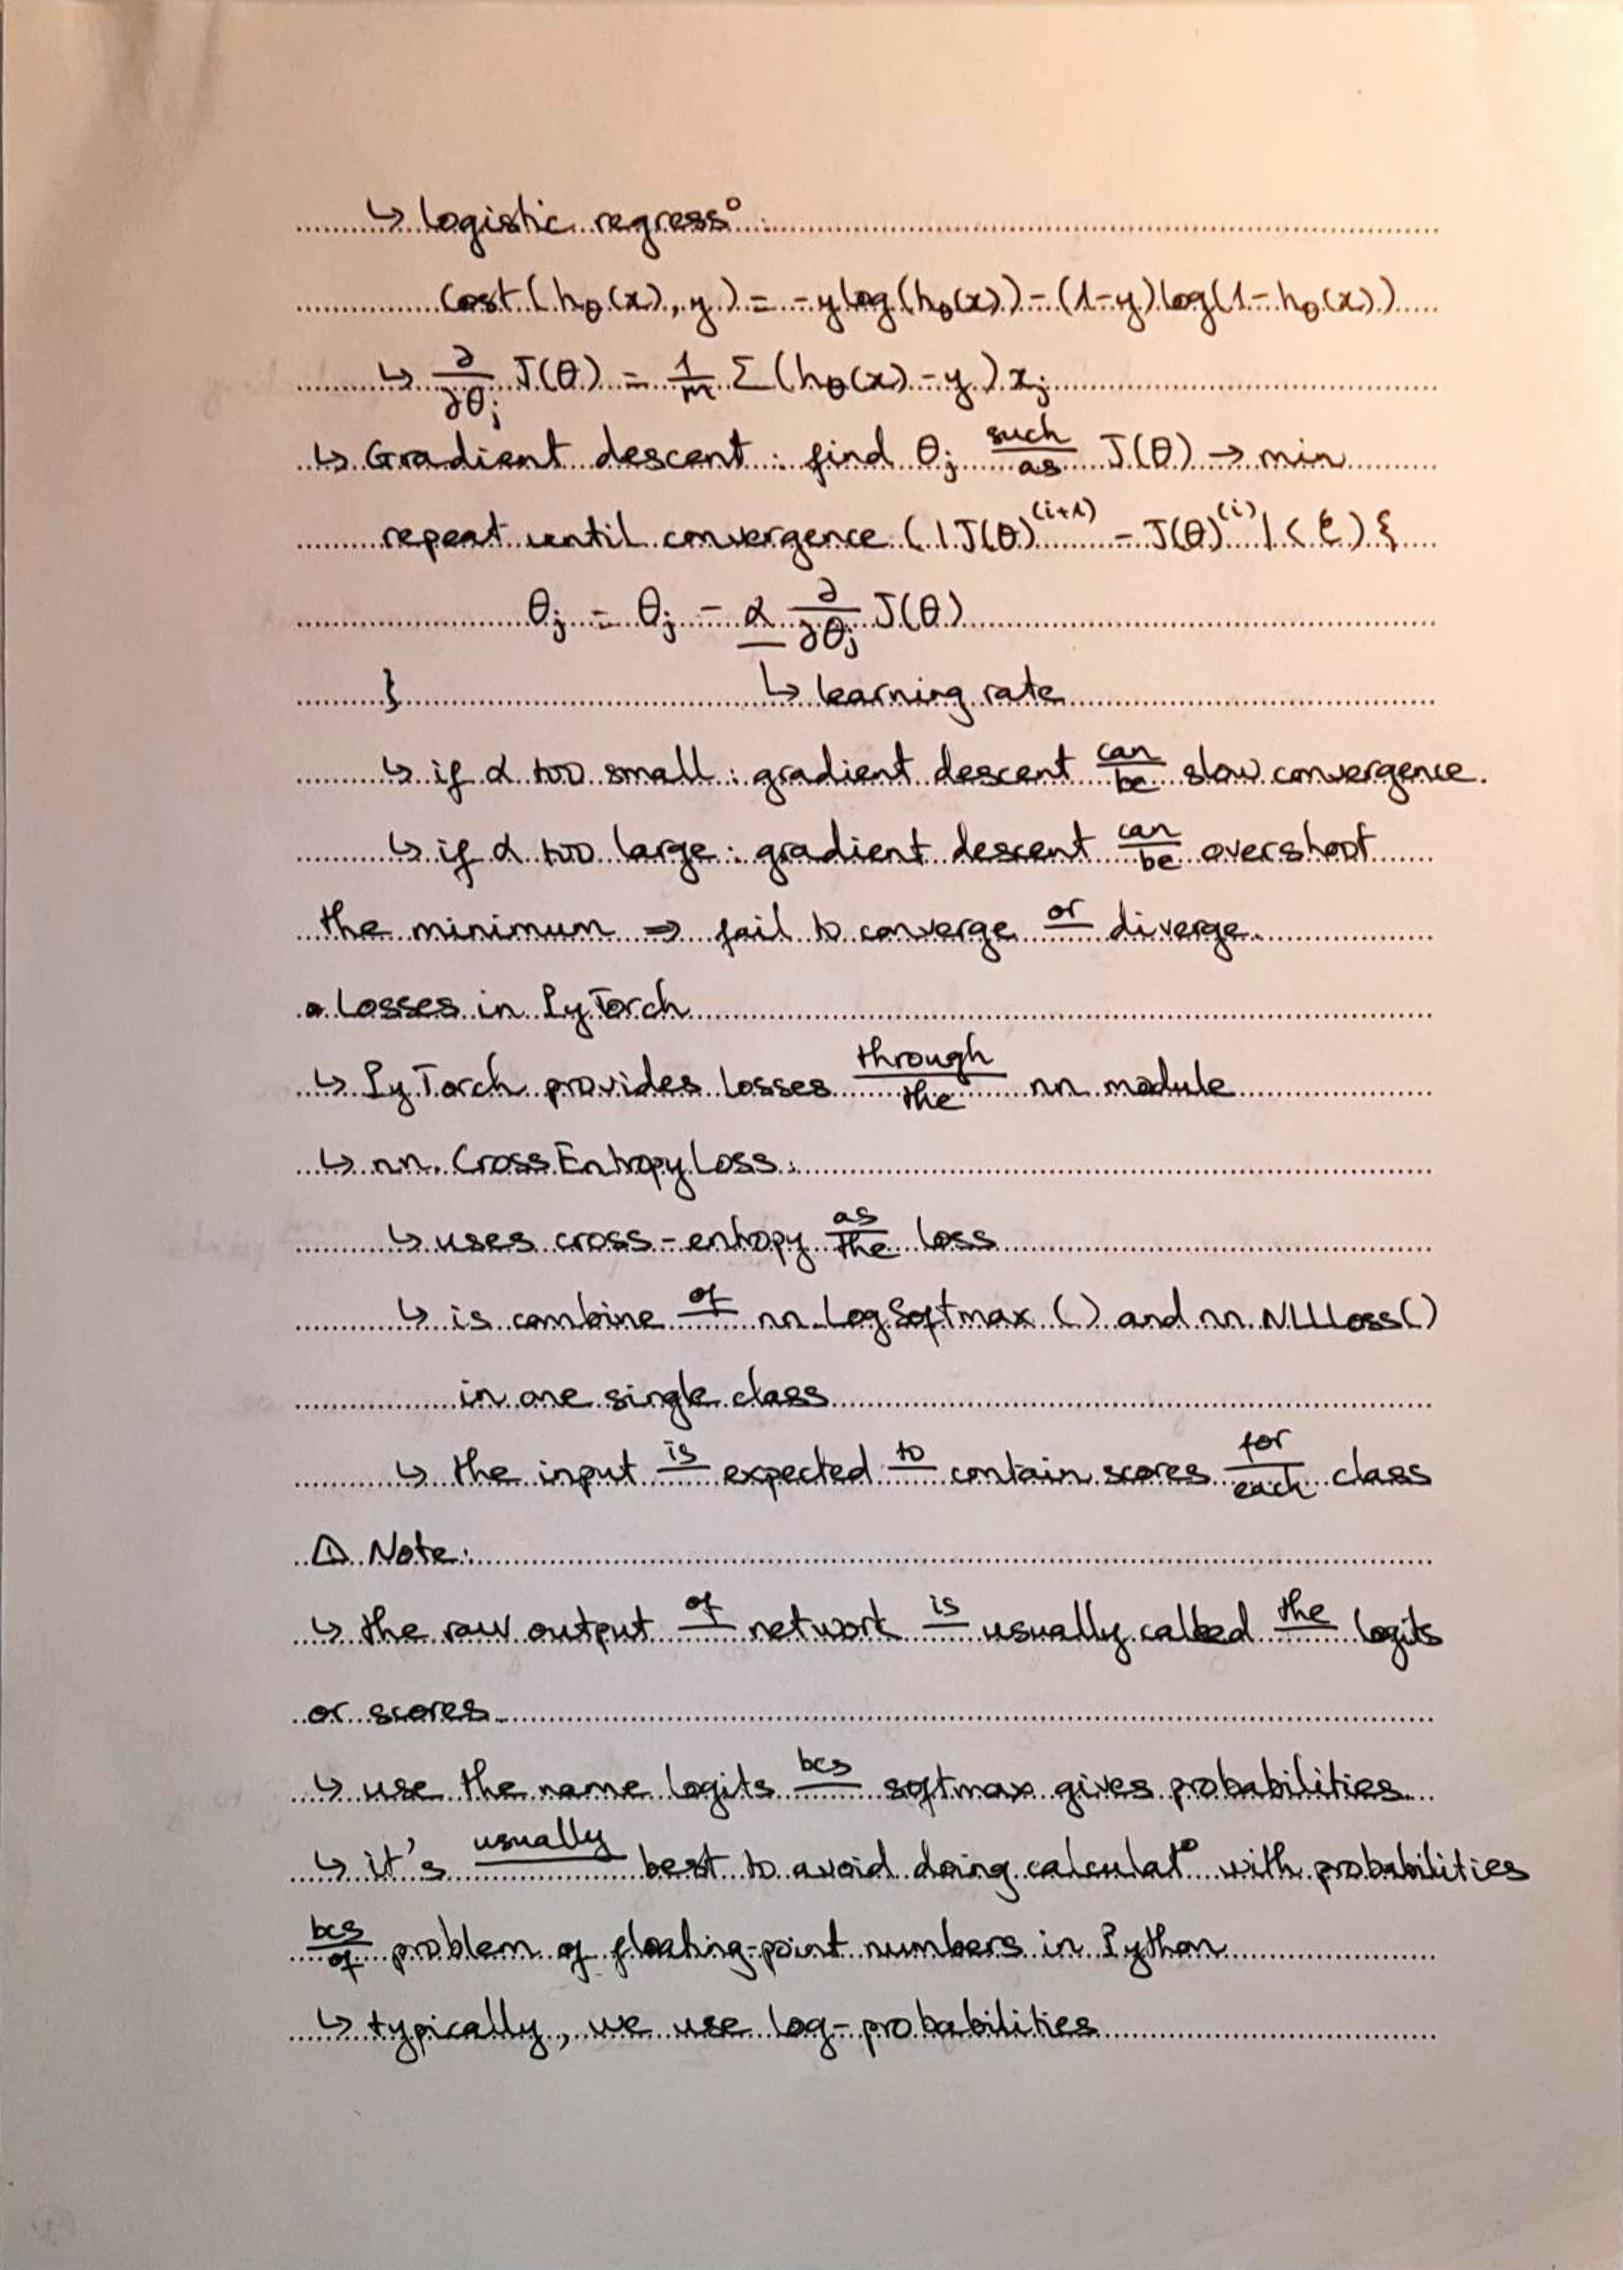 ↳ logistic regress° :
Cost(hθ(x), y) = -ylog(hθ(x)) - (1-y)log(1-hθ(x))
↳ ∂/∂θj J(θ) = 1/m Σ(hθ(x)-y)xj
↳ Gradient descent : find θj such as J(θ) → min
repeat until convergence (|J(θ)^(i+1) - J(θ)^(i)| < ε) {
θj = θj - α ∂/∂θj J(θ)
} ↳ learning rate
↳ if α too small : gradient descent can be slow convergence.
↳ if α too large : gradient descent can be overshoot
the minimum ⇒ fail to converge or diverge.
• Losses in PyTorch
↳ PyTorch provides losses through the nn module
↳ nn.CrossEntropyLoss :
↳ uses cross-entropy as the loss
↳ is combine of nn.LogSoftmax() and nn.NLLLoss()
in one single class
↳ the input is expected to contain scores for each class
⚠ Note :
↳ the raw output of network is usually called the logits
or scores.
↳ use the name logits bcs softmax gives probabilities.
↳ it's usually best to avoid doing calculat° with probabilities
bcs of problem of floating-point numbers in Python
↳ typically, we use log-probabilities